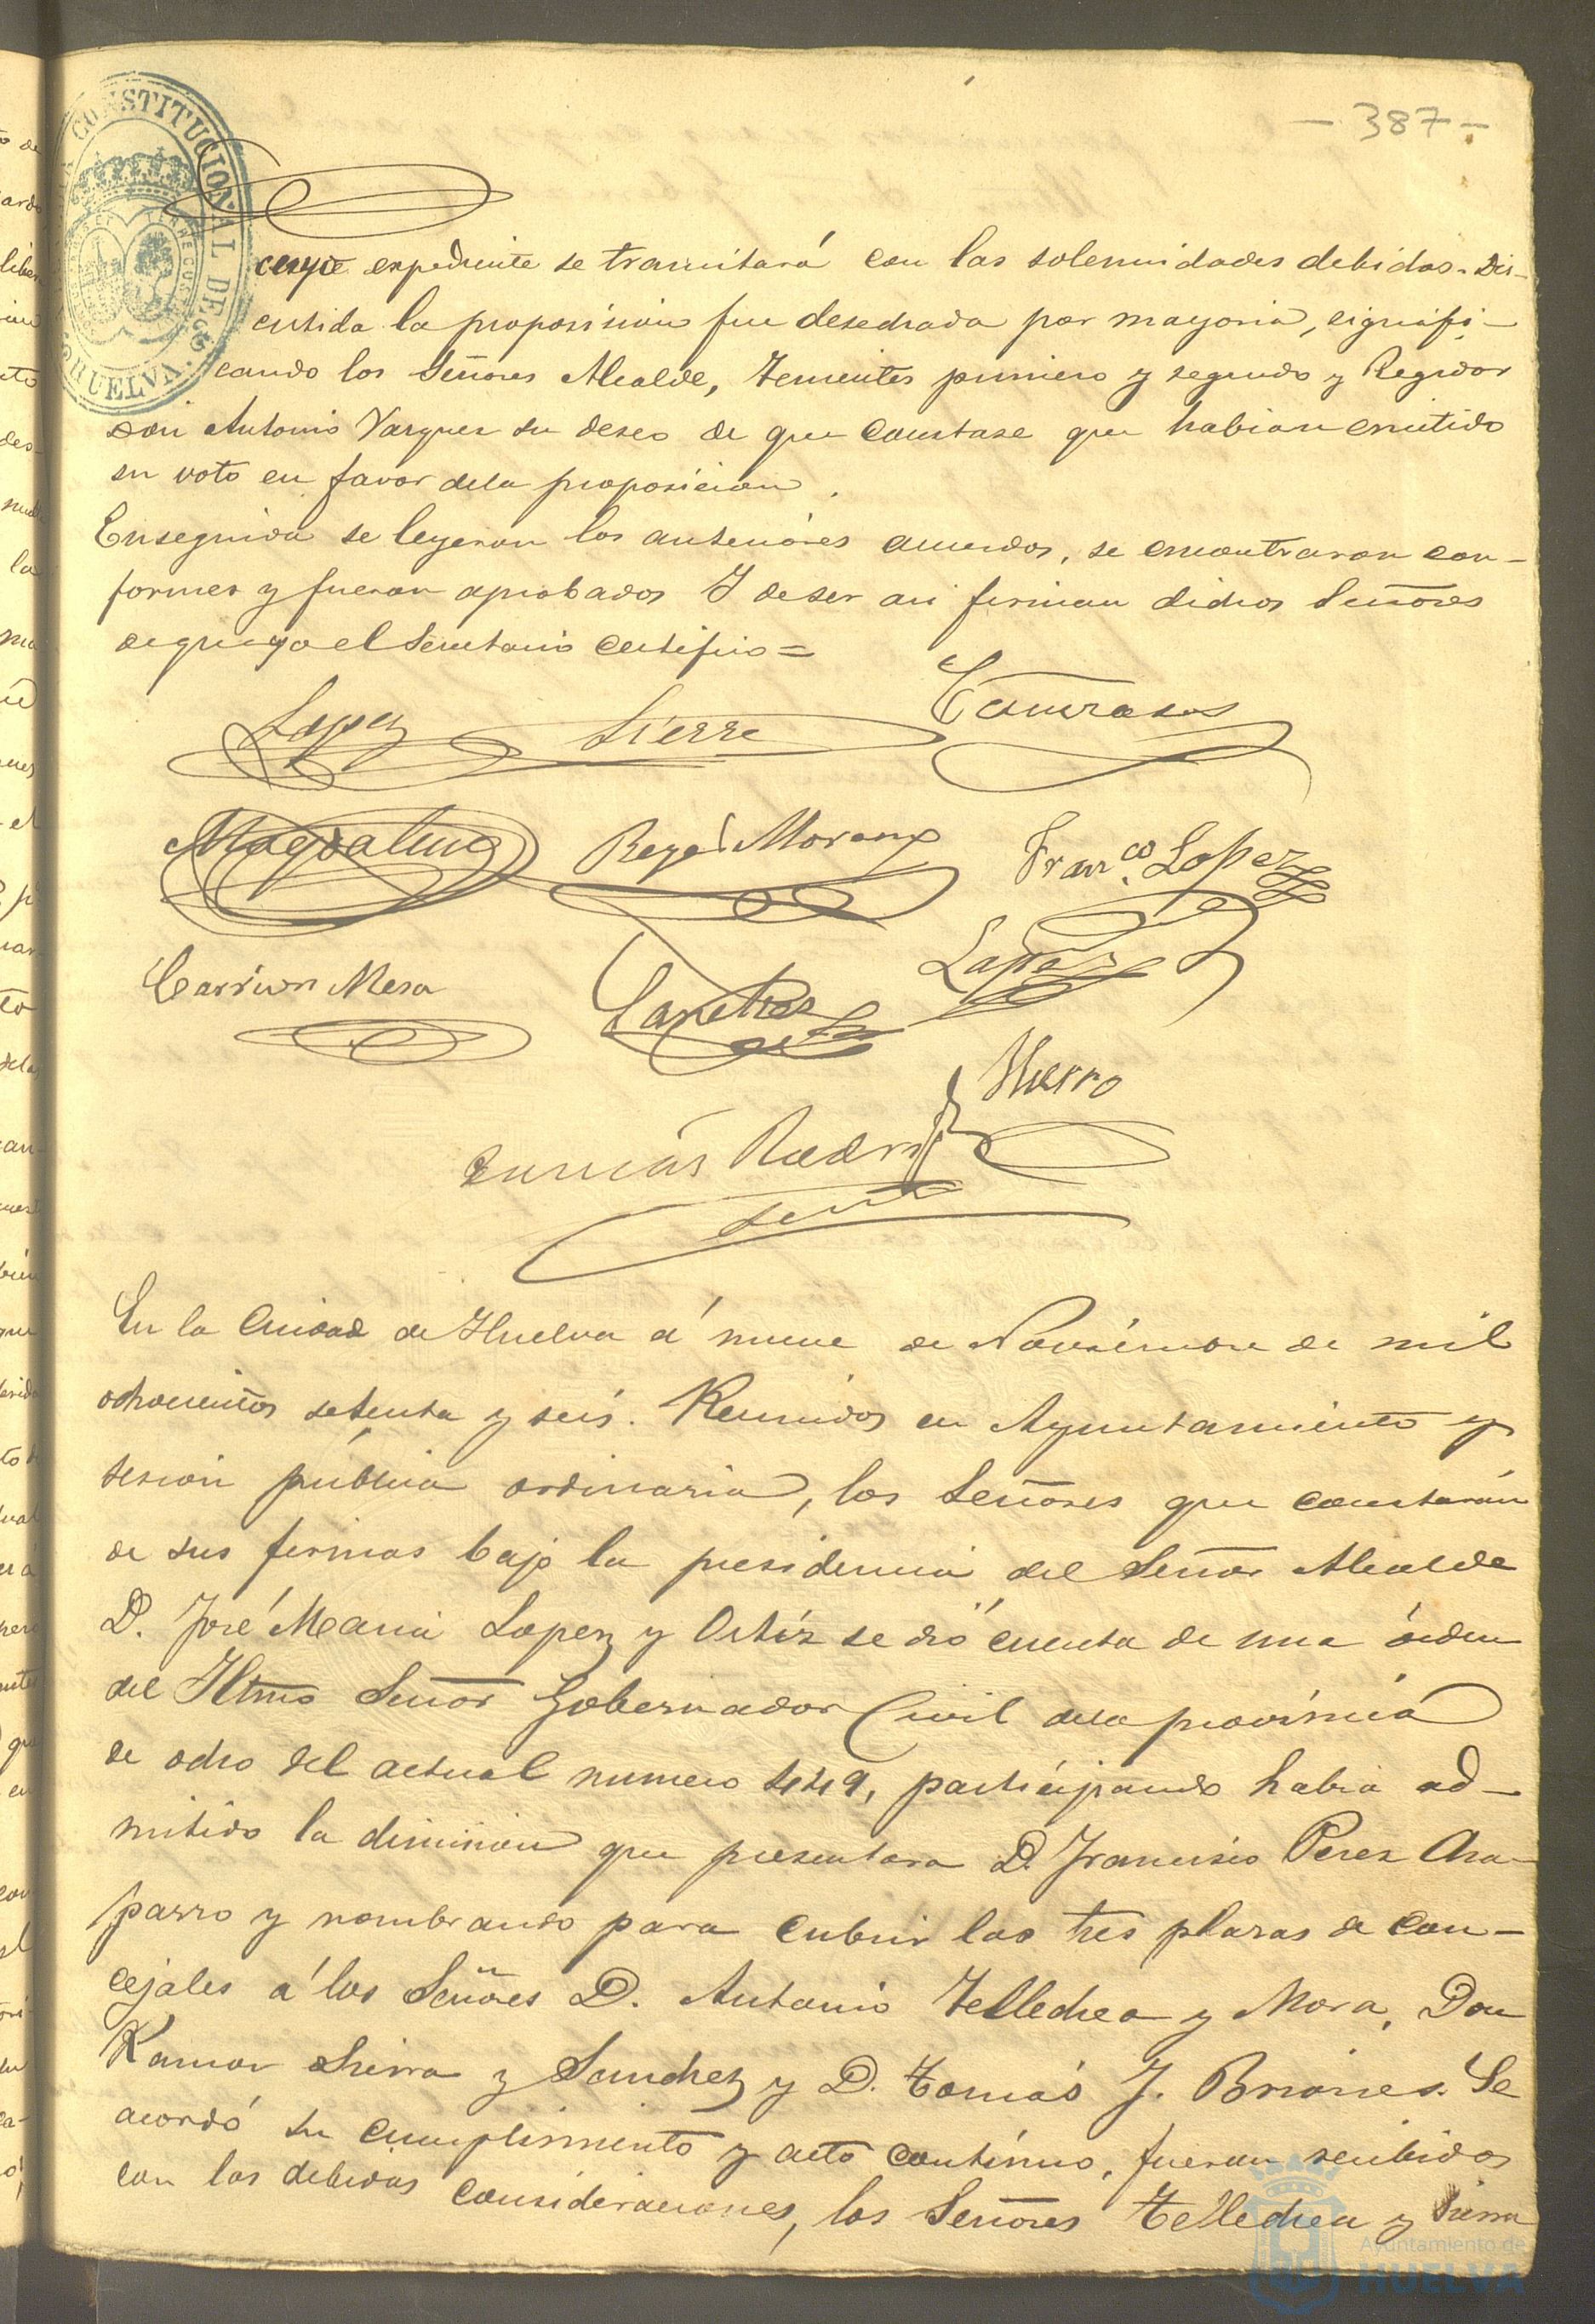 - 387 -
ALCALDIA CONSTITUCIONAL DE HUELVA.
cuyo expediente se tramitará con las solemnidades debidas. Dis-
cutida la proposicion fue desechada por mayoria, signifi-
cando los Señores Alcalde, Tenientes primero y segundo y Regidor
don Antonio Vazquez su deseo de que constase que habian emitido
su voto en favor dela proposicion.
Enseguida se leyeron los anteriores acuerdos, se encontraron con-
formes y fueron aprobados Y deser asi firman dichos Señores
deque yo el Secretario certifico =
Lopez Sierra
Magdalena Moreno Fran.co Lopez
Carrion Mesa Lopez
Hierro
Tomás Rodri
Srio
En la Ciudad de Huelva á nueve de Noviembre de mil
ochocientos setenta y seis. Reunidos en Ayuntamiento y
sesion pública ordinaria, los Señores que constarán
de sus firmas bajo la presidencia del Señor Alcalde
D. José Maria Lopez y Ortiz se dió cuenta de una órden
del Iltmo Señor Gobernador Civil dela provincia
de ocho del actual numero participando habia ad-
mitido la dimision que presentara D. Francisco Perez Cha-
parro y nombrando para cubrir las tres plazas de con-
cejales á los Señores D. Antonio Tellechea y Mora, Don
Ramon Sierra y Sanchez y D. Tomás J. Briones. Se
acordó su cumplimiento y acto contínuo, fueron recibidos
con las debidas consideraciones, los Señores Tellechea y Sierra
Ayuntamiento de
HUELVA